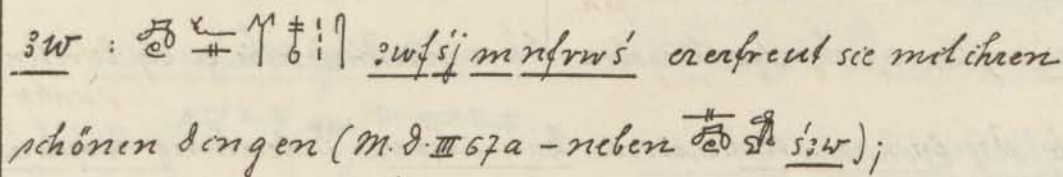 ꜣw : ꜣwfśj m nfrwś er erfreut sie mit ihren
schönen Dingen (M. D. III 67a – neben śꜣw);